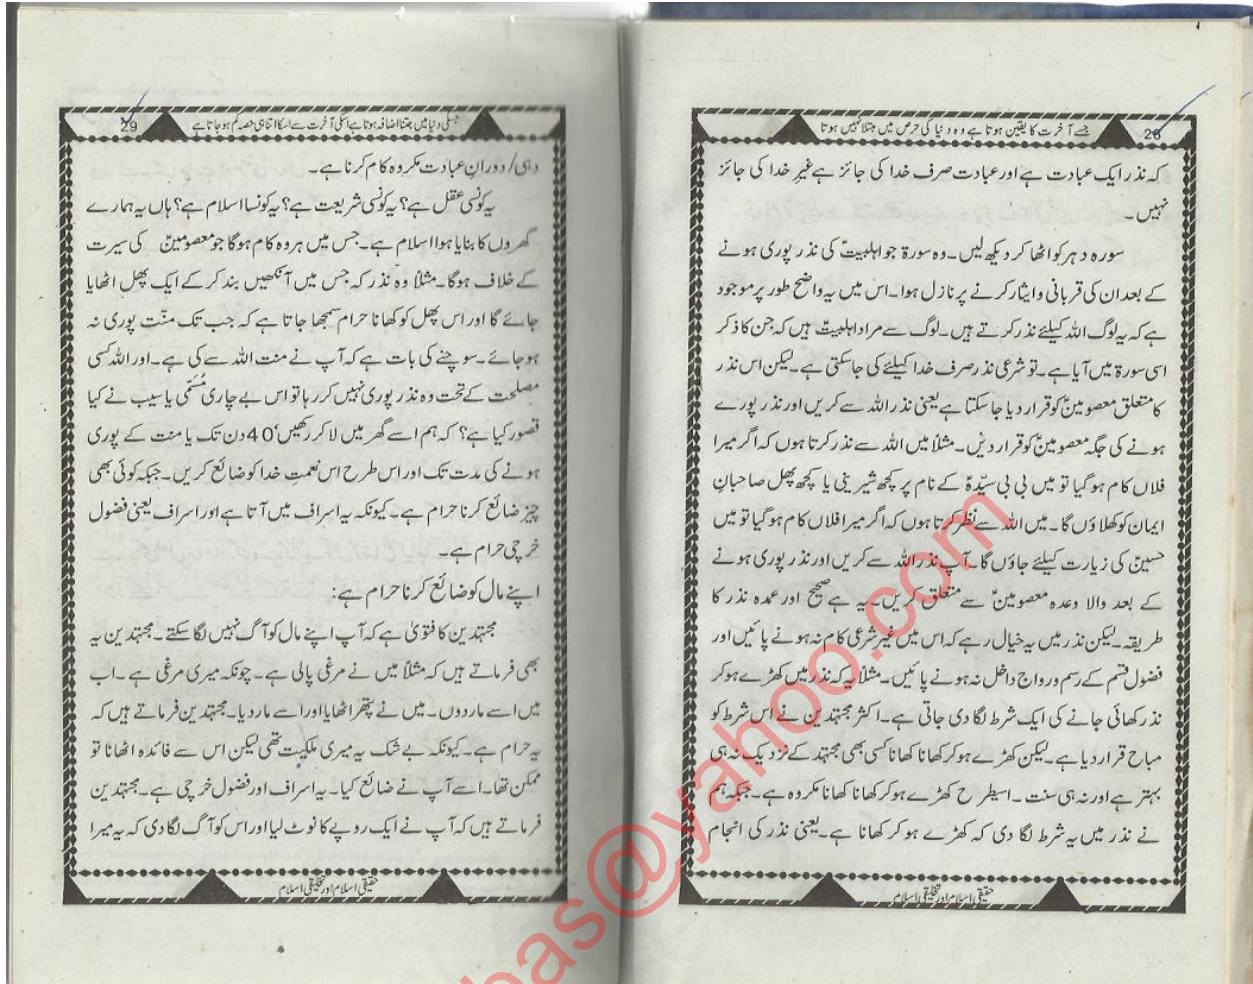 جسے آخرت کا یقین ہوتا ہے وہ دنیا کی حرص میں مبتلا نہیں ہوتا
28
کہ نذر ایک عبادت ہے اور عبادت صرف خدا کی جائز ہے غیرِ خدا کی جائز
نہیں۔
سورہ دہر کو اٹھا کر دیکھ لیں۔ وہ سورۃ جو اہلبیتؑ کی نذر پوری ہونے
کے بعد ان کی قربانی و ایثار کرنے پر نازل ہوا۔ اس میں یہ واضح طور پر موجود
ہے کہ یہ لوگ اللہ کیلئے نذر کرتے ہیں۔ لوگ سے مراد اہلبیتؑ ہیں کہ جن کا ذکر
اسی سورۃ میں آیا ہے۔ تو شرعی نذر صرف خدا کیلئے کی جاسکتی ہے۔ لیکن اس نذر
کا متعلق معصومینؑ کو قرار دیا جا سکتا ہے یعنی نذر اللہ سے کریں اور نذر پورے
ہونے کی جگہ معصومینؑ کو قرار دیں۔ مثلاً میں اللہ سے نذر کرتا ہوں کہ اگر میرا
فلاں کام ہو گیا تو میں بی بی سیّدہؑ کے نام پر کچھ شیرینی یا کچھ پھل صاحبانِ
ایمان کو کھلاؤں گا۔ میں اللہ سے نظر کرتا ہوں کہ اگر میرا فلاں کام ہو گیا تو میں
حسینؑ کی زیارت کیلئے جاؤں گا۔ آپ نذر اللہ سے کریں اور نذر پوری ہونے
کے بعد والا وعدہ معصومینؑ سے متعلق کریں۔ یہ ہے صحیح اور عمدہ نذر کا
طریقہ۔ لیکن نذر میں یہ خیال رہے کہ اس میں غیر شرعی کام نہ ہونے پائیں اور
فضول قسم کے رسم و رواج داخل نہ ہونے پائیں۔ مثلاً یہ کہ نذر میں کھڑے ہو کر
نذر کھائی جانے کی ایک شرط لگا دی جاتی ہے۔ اکثر مجتہدین نے اس شرط کو
مباح قرار دیا ہے۔ لیکن کھڑے ہو کر کھانا کھانا کسی بھی مجتہد کے نزدیک نہ ہی
بہتر ہے اور نہ ہی سنت۔ اسیطرح کھڑے ہو کر کھانا کھانا مکروہ ہے۔ جبکہ ہم
نے نذر میں یہ شرط لگا دی کہ کھڑے ہو کر کھانا ہے۔ یعنی نذر کی انجام
حقیقی اسلام اور تخلیقی اسلام
جسکی دنیا میں جتنا اضافہ ہوتا ہے اسکی آخرت سے اسکا اتنا ہی حصہ کم ہو جاتا ہے
29
دہی/ دورانِ عبادت مکروہ کام کرنا ہے۔
یہ کونسی عقل ہے؟ یہ کونسی شریعت ہے؟ یہ کونسا اسلام ہے؟ ہاں یہ ہمارے
گھروں کا بنایا ہوا اسلام ہے۔ جس میں ہر وہ کام ہوگا جو معصومینؑ کی سیرت
کے خلاف ہوگا۔ مثلاً وہ نذر کہ جس میں آنکھیں بند کر کے ایک پھل اٹھایا
جائے گا اور اس پھل کو کھانا حرام سمجھا جاتا ہے کہ جب تک منّت پوری نہ
ہو جائے۔ سوچنے کی بات ہے کہ آپ نے منت اللہ سے کی ہے۔ اور اللہ کسی
مصلحت کے تحت وہ نذر پوری نہیں کر رہا تو اس بے چاری مُسَمّی یا سیب نے کیا
قصور کیا ہے؟ کہ ہم اسے گھر میں لا کر رکھیں‘ 40 دن تک یا منت کے پوری
ہونے کی مدت تک اور اس طرح اس نعمتِ خدا کو ضائع کریں۔ جبکہ کوئی بھی
چیز ضائع کرنا حرام ہے۔ کیونکہ یہ اسراف میں آتا ہے اور اسراف یعنی فضول
خرچی حرام ہے۔
اپنے مال کو ضائع کرنا حرام ہے:
مجتہدین کا فتویٰ ہے کہ آپ اپنے مال کو آگ نہیں لگا سکتے۔ مجتہدین یہ
بھی فرماتے ہیں کہ مثلاً میں نے مرغی پالی ہے۔ چونکہ میری مرغی ہے۔ اب
میں اسے مار دوں۔ میں نے پتھر اٹھایا اور اسے مار دیا۔ مجتہدین فرماتے ہیں کہ
یہ حرام ہے۔ کیونکہ بے شک یہ میری ملکیت تھی لیکن اس سے فائدہ اٹھانا تو
ممکن تھا۔ اسے آپ نے ضائع کیا۔ یہ اسراف اور فضول خرچی ہے۔ مجتہدین
فرماتے ہیں کہ آپ نے ایک روپے کا نوٹ لیا اور اس کو آگ لگا دی کہ یہ میرا
حقیقی اسلام اور تخلیقی اسلام
bas@yahoo.com